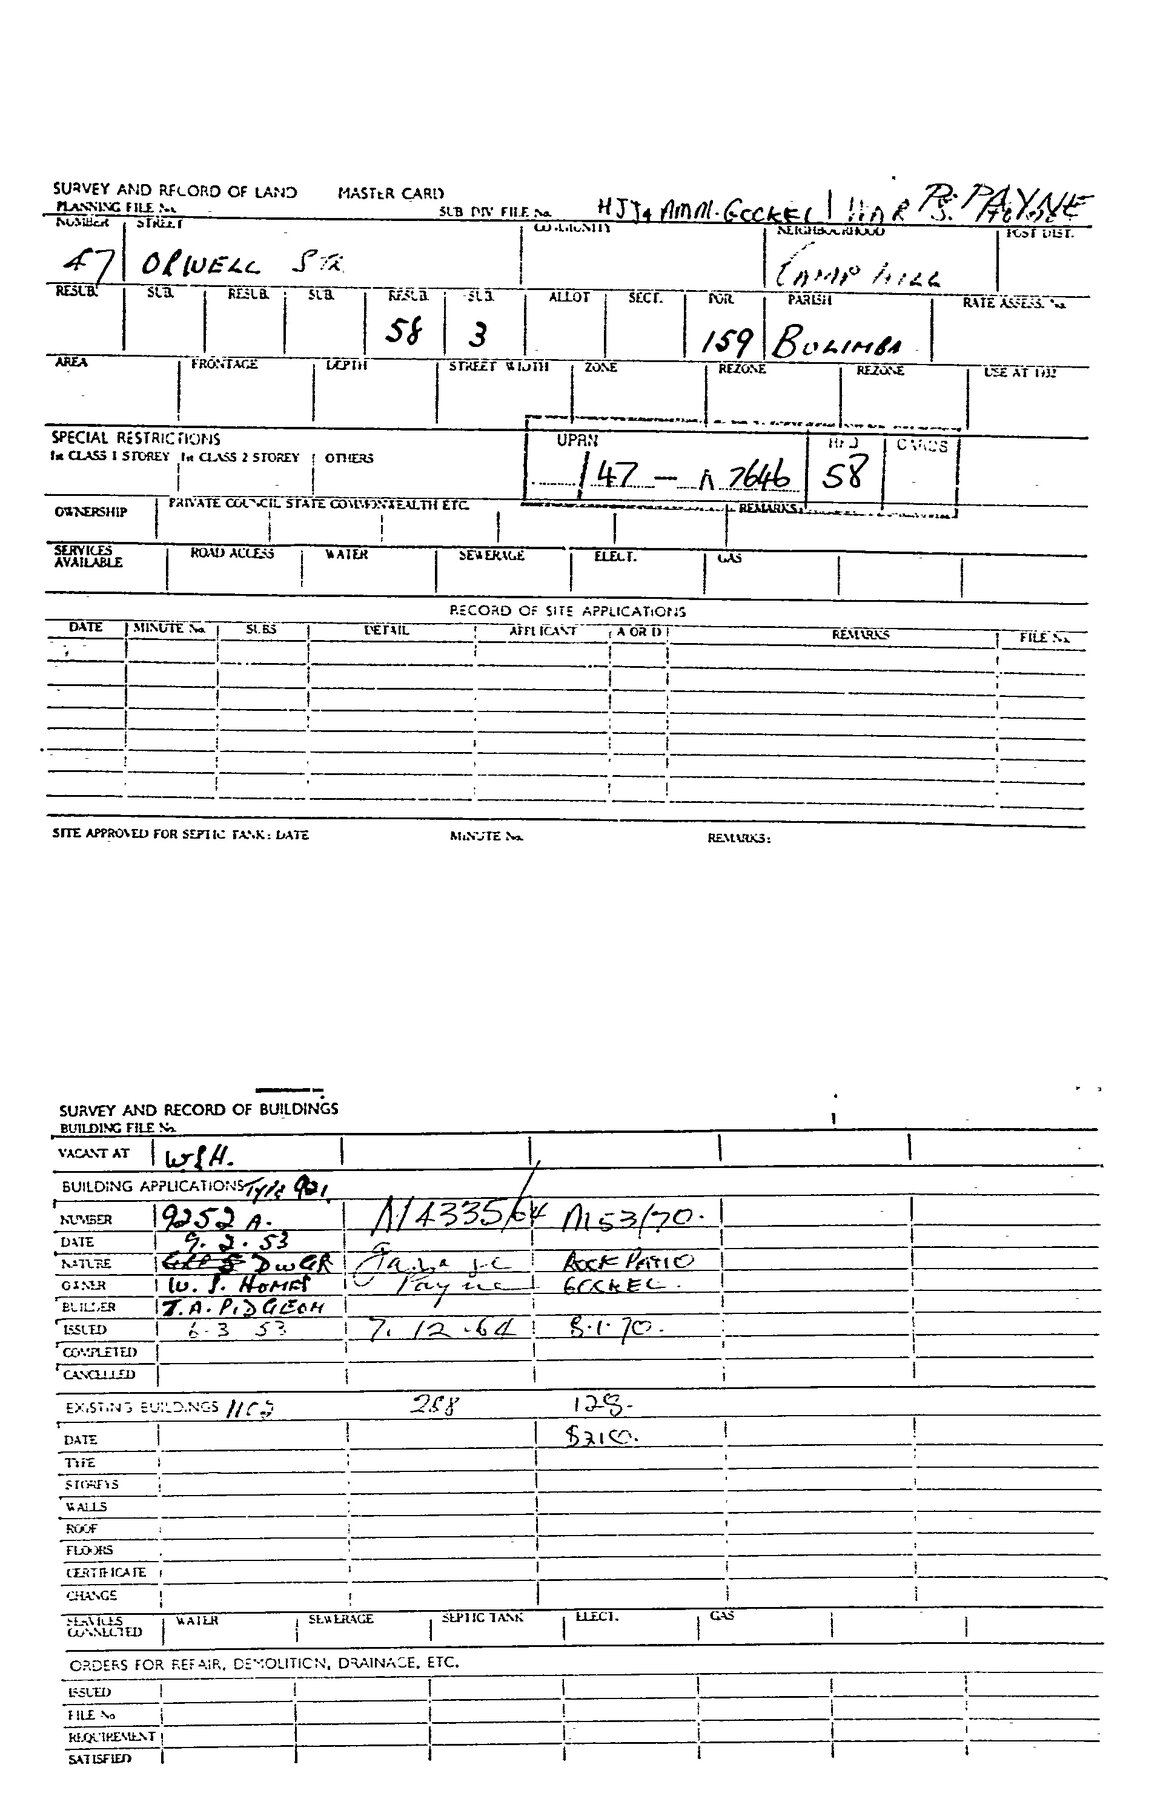 SURVEY AND RECORD OF LAND MASTER CARD
PLANNING FILE No. SUB DIV FILE No. HJT & AMM. GOCKEL R. S. PAYNE
NUMBER STREET COMMUNITY NEIGHBOURHOOD POST DIST.
47 ORWELL STR CAMP HILL
RESUB. SUB. RESUB. SUB. RESUB. SUB. ALLOT SECT. POR. PARISH RATE ASSESS. No.
58 3 159 BULIMBA
AREA FRONTAGE DEPTH STREET WIDTH ZONE REZONE REZONE USE AT 1932
SPECIAL RESTRICTIONS UPRN CARDS
1st CLASS 1 STOREY 1st CLASS 2 STOREY OTHERS
/47 — A 7646 58
OWNERSHIP PRIVATE COUNCIL STATE COMMONWEALTH ETC. REMARKS:
SERVICES AVAILABLE ROAD ACCESS WATER SEWERAGE ELECT. GAS
RECORD OF SITE APPLICATIONS
DATE MINUTE No. SUBS DETAIL APPLICANT A OR D REMARKS FILE No.
SITE APPROVED FOR SEPTIC TANK: DATE MINUTE No. REMARKS:
SURVEY AND RECORD OF BUILDINGS
BUILDING FILE No.
VACANT AT W.S.H.
BUILDING APPLICATIONS Type 921
NUMBER 9252 A. A14335/64 A153/70.
DATE 9. 2. 53
NATURE DWGR ROCK PATIO
OWNER W. S. HOMES Payne GOCKEL.
BUILDER T. A. PIDGEON
ISSUED 6. 3 53 7. 12. 64 8. 1. 70.
COMPLETED
CANCELLED
EXISTING BUILDINGS 288 128.
DATE $210.
TYPE
STOREYS
WALLS
ROOF
FLOORS
CERTIFICATE
CHANGE
SERVICES CONNECTED WATER SEWERAGE SEPTIC TANK ELECT. GAS
ORDERS FOR REPAIR, DEMOLITION, DRAINAGE, ETC.
ISSUED
FILE No
REQUIREMENT
SATISFIED